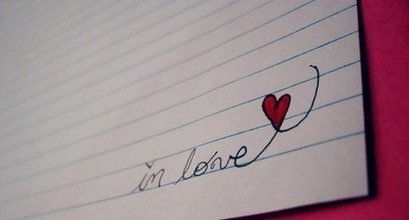 in love